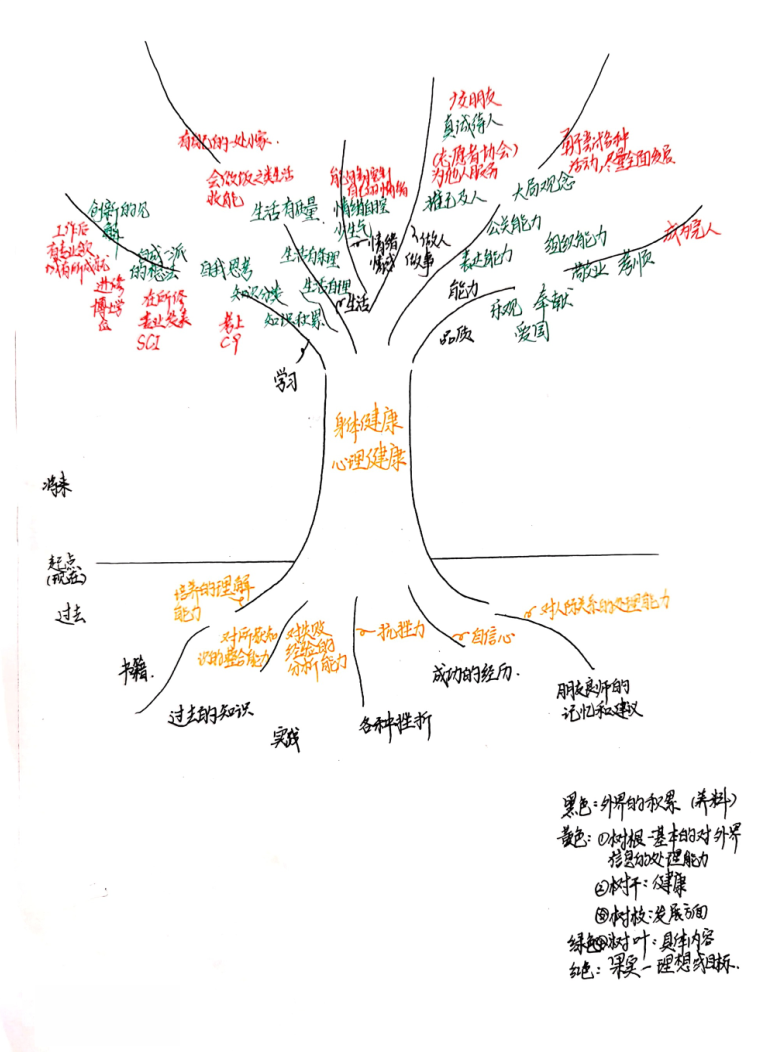 交朋友
真诚待人
(志愿者协会)
为他人服务
推己及人
有自己的一处小家.
会做饭之类生活
技能
生活有质量
能够控制
自己的情绪
情绪自控
少生气
情绪
做人
做事
大局观念
公关能力
表达能力
组织能力
能力
敬业 孝顺
成为完人
乐观 奉献
爱国
品质
创新的见
解
工作后
有专业效
自成一派
的想法
进修
博士学
位
在所修
专业发表
SCI
自我思考
知识分类
知识积累
考上
C9
学习
生活有理
生活自理
生活
身体健康
心理健康
将来
起点
(现在)
过去
培养的理解
能力
对所获知
识的整合能力
对失败
经验的
分析能力
抗挫力
自信心
对人际关系的处理能力
书籍.
过去的知识
实践
各种挫折
成功的经历.
朋友良师的
记忆和建议
黑色:外界的积累 (养料)
黄色:①树根-基本的对外界
信息的处理能力
②树干:健康
③树枝:发展方面
绿色④树叶:具体内容
红色:果实-理想或目标.